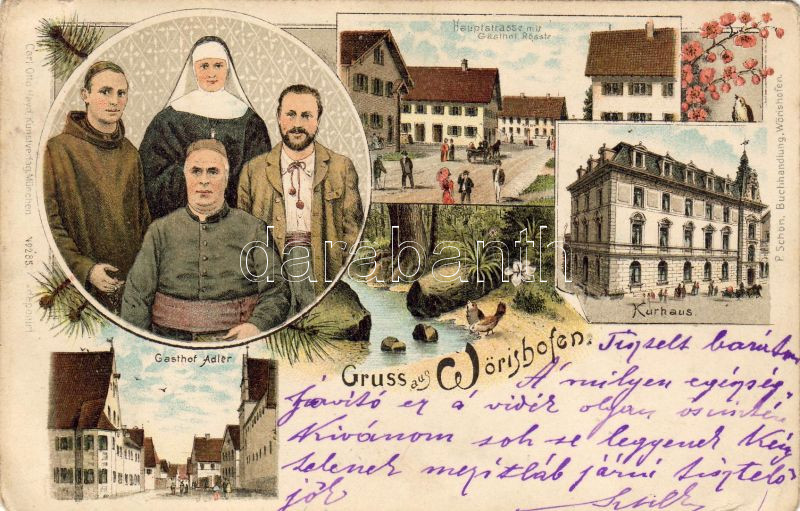 Hauptstrasse mit
Gasthof Rössle
Carl Otto
Kunstverlag, München
No 285
P. Schön, Buchhandlung, Wörishofen.
Kurhaus.
Gasthof Adler
Gruss aus Wörishofen.
darabanth.com
Tisztelt barátom
A milyen egészség
javító ez a vidék olyan őszintén
Kívánom soh se legyenek Kény
telenek mezítláb járni tisztelő
jök